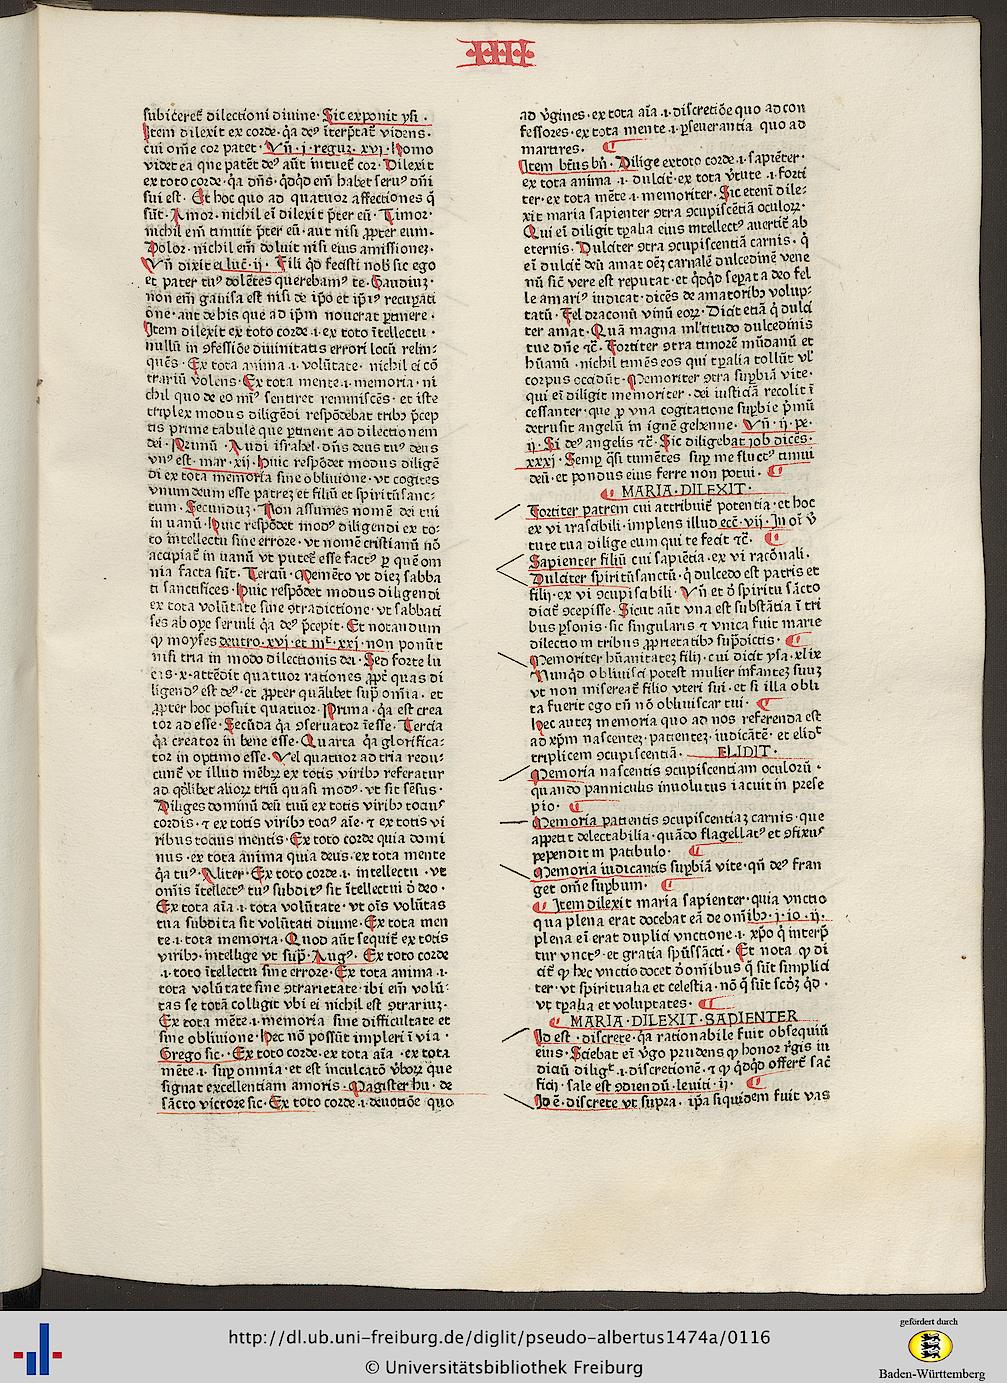 IIII
subiceret dilectioni diuine· Sic exponit ysi·
Item dilexit ex corde· q̄a deꝰ īterp̄tat̄ videns·
cui om̄e cor patet· Vn̄·j·regum·xvj· Homo
videt ea que patēt deꝰ aūt intuet̄ cor· Dilexit
ex toto corde· q̄a dn̄s· q̄dq̄d em̄ habet seruꝰ dn̄i
sui est· Et hoc quo ad quatuor affectiones q̄
sūt· Amor· nichil ei dilexit p̄ter eū· Timor·
nichil em̄ timuit p̄ter eū· aut nisi ꝓpter eum·
Dolor· nichil em̄ doluit nisi eius amissionez·
Vn̄ dixit ei luc̄·ij· Fili q̄d fecisti nob̄ sic ego
et pater tuꝰ dolētes querebamꝰ te· Gaudiuz·
non em̄ gauisa est nisi de ip̄o et ip̄iꝰ recupati
ōne· aut de his que ad ip̄m nouerat ꝑtinere·
Item dilexit ex toto corde·i·ex toto ītellectu·
nullū in ꝯfessiōe diuinitatis errori locū relin-
quēs· Ex tota anima·i·volūtate· nichil ei cō
trariū volens· Ex tota mente·i·memoria· ni
chil quo de eo minꝰ sentiret reminiscēs· et iste
triplex modus diligēdi respōdebat tribꝰ p̄cep
tis prime tabule que ꝑtinent ad dilectionem
dei· Primū· Audi israhel· dn̄s deus tuꝰ deus
vnꝰ est· mar·xij· Huic respōdet modus diligē
di ex tota memoria sine obliuione· vt cogites
vnum deum esse patrez et filiū et spiritūsanc-
tum· Secunduz· Non assumes nomē dei tui
in uanū· Huic respōdet modꝰ diligendi ex to-
to intellectu sine errore· vt nomē cristianū nō
accipias in uanū vt putes esse factꝰ ꝑ quē om
nia facta sūt· Terciū· Memēto vt diez sabba
ti sanctifices· Huic respōdet modus diligendi
ex tota volūtate sine ꝯtradictione· vt sabbati
ses ab oꝑe seruili q̄a deꝰ p̄cepit· Et notandum
ꝙ moyses deutro·xvj·et mt̄·xxj·non ponūt
nisi tria in modo dilectionis dei· Sed forte lu
cas·x·attēdit quatuor rationes ꝓpt̄ quas di
ligendꝰ est deꝰ· et ꝓpter quālibet sup̄ om̄ia· et
ꝓpter hoc posuit quatuor· Prima· q̄a est crea
tor ad esse· Secūda q̄a ꝯseruator īesse· Tercia
q̄a creator in bene esse· Quarta q̄a glorifica-
tor in optimo esse· Vel quatuor ad tria redu-
cunt̄ vt illud mēbꝝ ex totis viribꝰ referatur
ad q̄dlibet alioꝝ triū quasi modꝰ· vt sit sēsus·
Diliges dominū deū tuū ex totis viribꝰ tociꝰ
cordis· ⁊ ex totis viribꝰ tociꝰ aīe· ⁊ ex totis vi
ribus tocius mentis· Ex toto corde quia domi
nus· ex tota anima quia deus· ex tota mente
q̄a tuꝰ· Aliter· Ex toto corde·i·intellectu· vt
om̄is ītellectꝰ tuꝰ subditꝰ sit ītellectui ō deo·
Ex tota aīa·i·tota volūtate· vt oīs volūtas
tua subdita sit volūtati diuine· Ex tota men
te·i·tota memoria· Quod aūt sequit̄ ex totis
viribꝰ· intellige vt sup̄· Augꝰ· Ex toto corde
·i·toto ītellectu sine errore· Ex tota anima·i·
tota volūtate sine ꝯtrarietate· ibi em̄ volū-
tas se totā colligit vbi ei nichil est ꝯtrariuz·
Ex tota mēte·i·memoria sine difficultate et
sine obliuione· Hec nō possūt impleri ī via·
Grego sic·· Ex toto corde· ex tota aīa·ex tota
mēte·i·sup̄ omnia· et est inculcatō ỽboꝝ que
signat excellentiam amoris· Magister hu·de
sācto victore sic· Ex toto corde·i·deuotiōe quo
ad ỽgines· ex tota aīa·i·discretiōe quo ad con
fessores· ex tota mente·i·ꝑseuerantia quo ad
martires·
Item bt̄us bn̄· Dilige ex toto corde·i·sapiēter·
ex tota anima·i·dulcit̄· ex tota ỽtute·i·forti
ter· ex tota mēte·i·memoriter· Sic etem̄ dile-
xit maria sapienter ꝯtra ꝯcupiscētiā oculoꝝ·
Qui ei diligit xp̄alia eius intellectꝰ auertit̄ ab
eternis· Dulciter ꝯtra ꝯcupiscentiā carnis· q̄
ei dulcit̄ deū amat oēz carnalē dulcedinē vene
nū sic̄ vere est reputat· et q̄dq̄d sepat a deo fel
le amariꝰ iudicat· dicēs de amatoribꝰ volup-
tatū· Fel draconū vinū eoꝝ· Dicit etiā q̄ dulci
ter amat· Quā magna ml̄titudo dulcedinis
tue dn̄e ⁊c̄· Fortiter ꝯtra timorē mūdanū et
hūanū· nichil timēs eos qui tp̄alia tollūt vl̄
corpus occidūt· Memoriter ꝯtra sup̄biā vite·
qui ei diligit memoriter· dei iusticiā recolit ī
cessanter· que ꝑ vna cogitatione sup̄bie p̄mū
detrusit angelū in ignē gehenne· Vn̄·ij·pe·
ij· Si deꝰ angelis ⁊c̄· Sic diligebat job dicēs·
xxxj· Semꝑ q̄si tumētes sup̄ me fluctꝰ timui
deū· et pondus eius ferre non potui·
MARIA·DILEXIT·
Fortiter patrem cui attribuit̄ potentia· et hoc
ex vi irascibili· implens illud ecc̄·vij· In oī ỽ
tute tua dilige eum qui te fecit ⁊c̄·
Sapienter filiū cui sapiētia· ex vi racōnali·
Dulciter spiritūsanctū· q̄ dulcedo est patris et
filij· ex vi ꝯcupisabili· Vn̄ et ō spiritu sācto
dicit̄ ꝯcepisse· Sicut aūt vna est substātia ī tri
bus ꝑsonis· sic singularis ⁊ vnica fuit marie
dilectio in tribus ꝓprietatibꝰ sup̄dictis·
Memoriter hūanitatez filij· cui dicit ysa·xlix
Nunq̄d obliuisci potest mulier infantez suuz
vt non misereat̄ filio vteri sui· et si illa obli
ta fuerit ego tn̄ nō obliuiscar tui·
Hec autez memoria quo ad nos referenda est
ad xp̄m nascentez· patientez· iudicātē· et elidt̄
triplicem ꝯcupiscentiā· ELIDIT·
Memoria nascentis ꝯcupiscentiam oculorū·
quando panniculis inuolutus iacuit in prese
pio·
Memoria patientis ꝯcupiscentiaz carnis· que
appetit delectabilia· quādo flagellatꝰ et ꝯfixus
pependit in patibulo·
Memoria iudicantis sup̄biā vite· qn̄ deꝰ fran
get om̄e sup̄bum·
Item dilexit maria sapienter· quia vnctio
qua plena erat docebat eā de om̄ibꝰ·j·io·ij·
plena ei erat duplici vnctione·i·xp̄o q̄ interp̄
tur vnctꝰ· et gratia spūssācti· Et nota ꝙ di
cit̄ ꝙ hec vnctio docet ō omibus q̄ sūt simplici
ter· vt spiritualia et celestia· nō q̄ sūt scd̄z q̄d·
vt tp̄alia et voluptates·
MARIA·DILEXIT·SAPIENTER
Id est·discrete· q̄a rationabile fuit obsequiū
eius· Sciebat ei ỽgo prudens ꝙ honor r̄gis iu
diciū diligt̄·i·discretionē· ⁊ ꝙ q̄dq̄d offert̄ sac̄
ficij· sale est ꝯdiendū· leuiti·ij·
Id ē·discrete vt supra· ip̄a siquidem fuit vas
http://dl.ub.uni-freiburg.de/diglit/pseudo-albertus1474a/0116
© Universitätsbibliothek Freiburg
gefördert durch
Baden-Württemberg